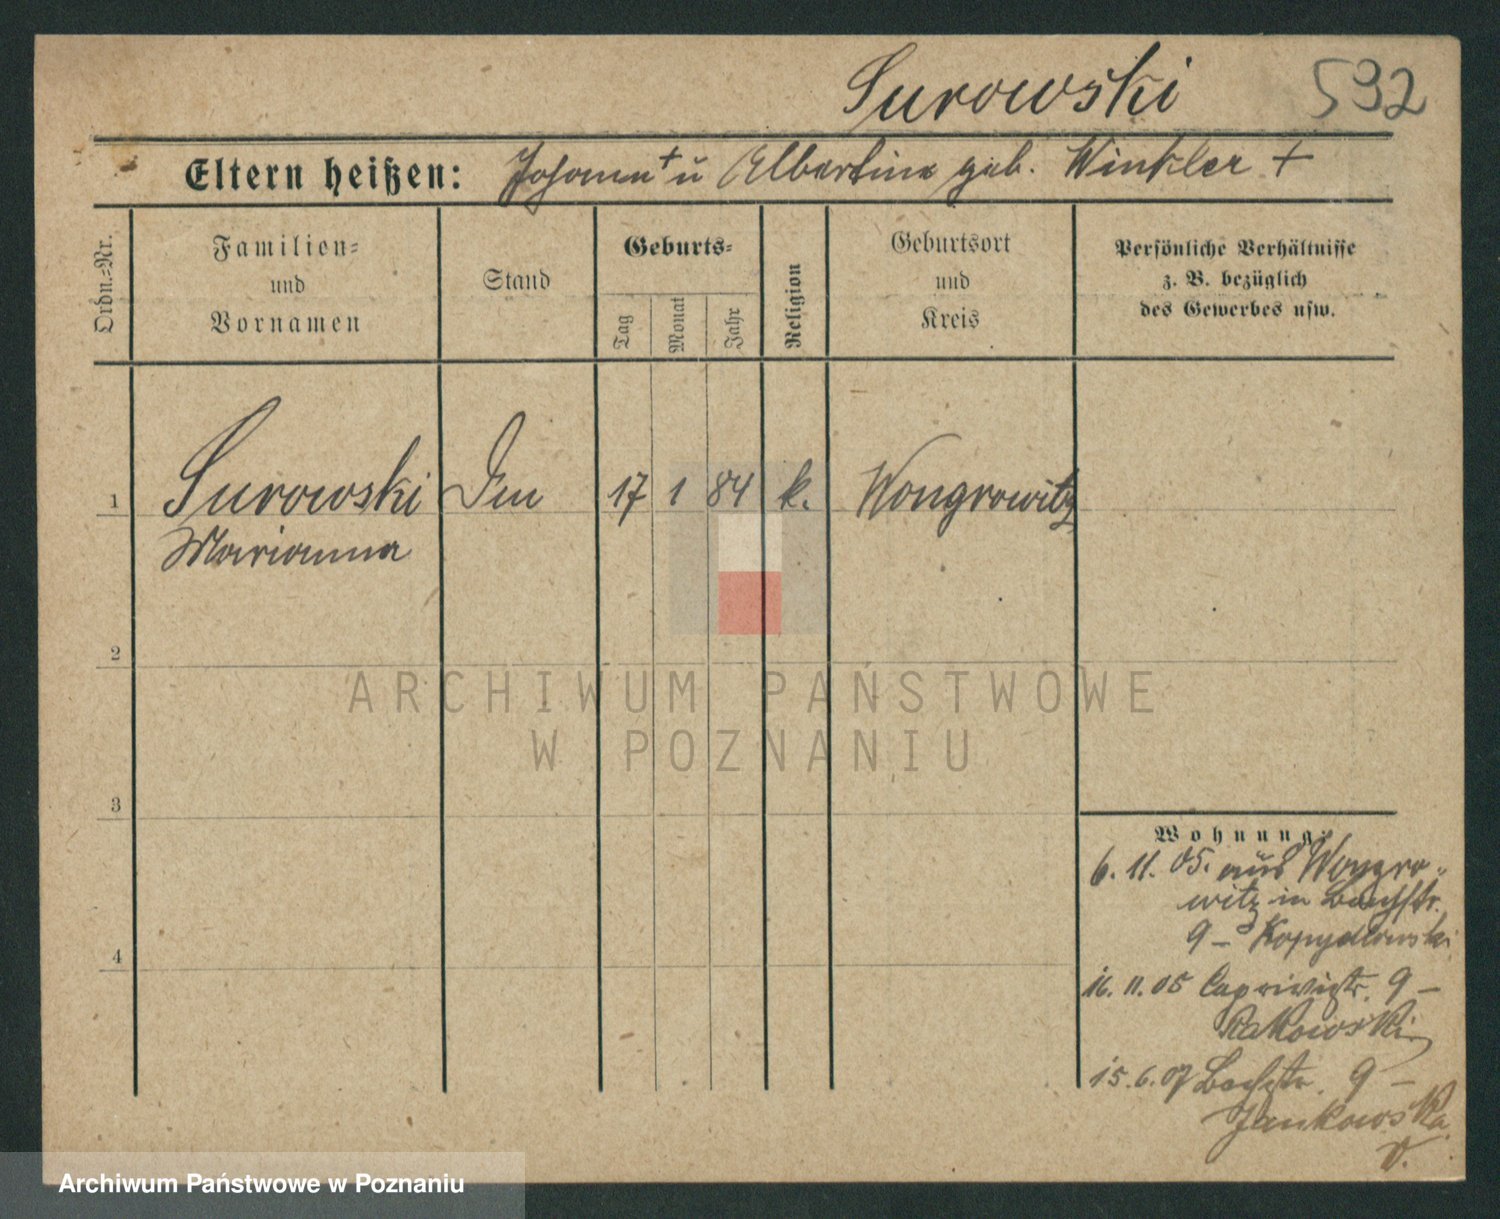 Surowski
532
Eltern heißen: Johann + u Albertine geb. Winkler +
Ordn.=Nr.
Familien=
und
Vornamen
Stand
Geburts=
Tag
Monat
Jahr
Religion
Geburtsort
und
Kreis
Persönliche Verhältnisse
z. B. bezüglich
des Gewerbes usw.
1
Surowski
17 1 84 k. Wongrowitz
Marianna
2
ARCHIWUM PAŃSTWOWE
W POZNANIU
3
Wohnung:
6. 11. 05. aus Wongro-
witz in Bachstr.
9 – Kopydlowski
16. 11. 05 Caprivistr. 9 –
Rakowski
4
15. 6. 07 Bachstr. 9 –
Jankowska
Archiwum Państwowe w Poznaniu